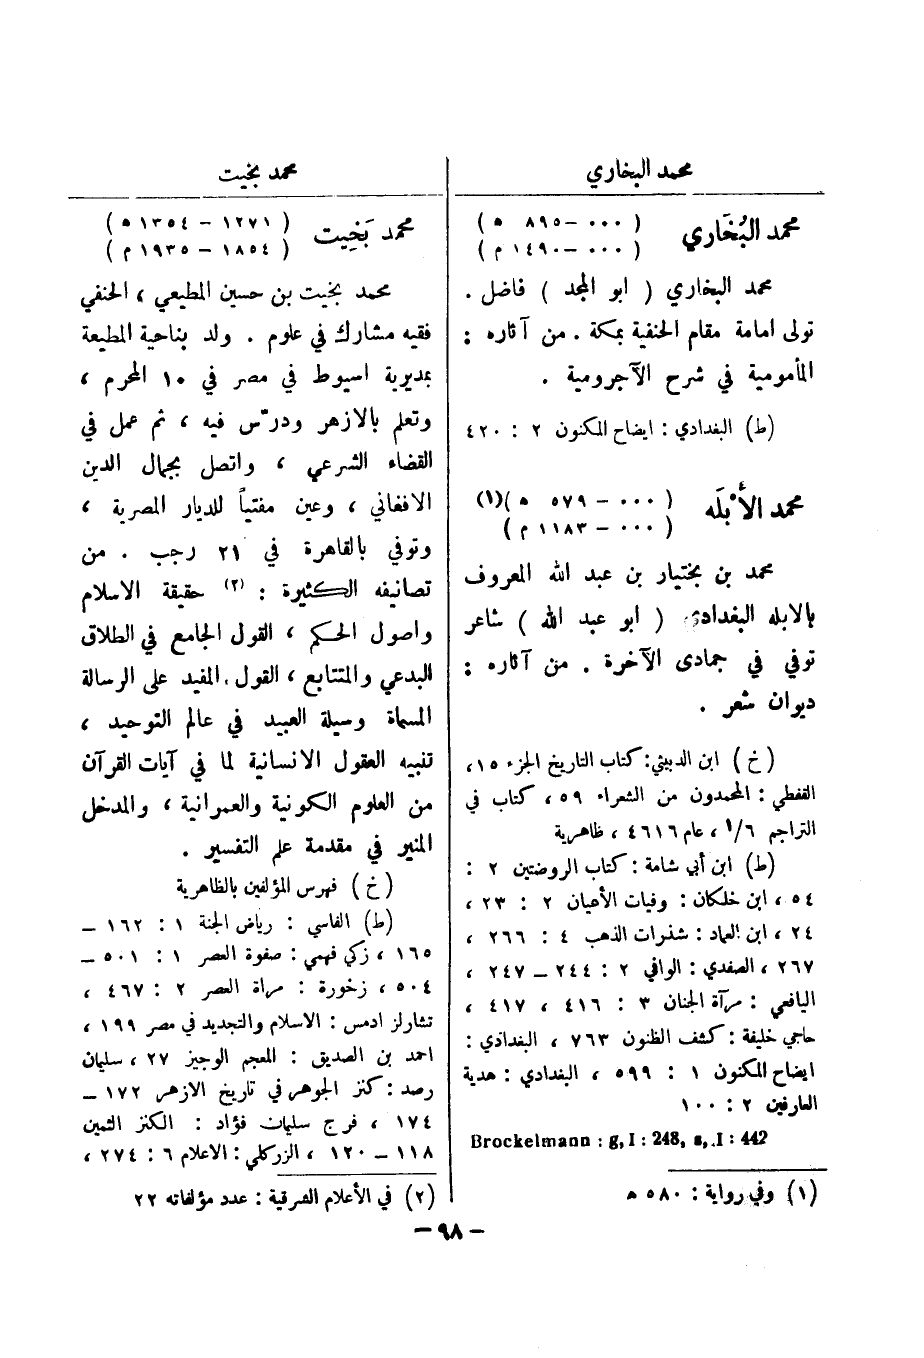 محمد البخاري
محمد البُخَاري ( ٠٠٠ – ٨٩٥ ه )
( ٠٠٠ – ١٤٩٠ م )
محمد البخاري ( ابو المجد ) فاضل .
تولى امامة مقام الحنفية بمكة . من آثاره :
المأمومية في شرح الآجرومية .
(ط) البغدادي : ايضاح المكنون ٢ : ٤٢٠
محمد الأبْلَه ( ٠٠٠ – ٥٧٩ ه )(١)
( ٠٠٠ – ١١٨٣ م )
محمد بن بختيار بن عبد الله المعروف
بالابله البغدادي ( ابو عبد الله ) شاعر
توفي في جمادى الآخرة . من آثاره :
ديوان شعر .
( خ ) ابن الدبيثي: كتاب التاريخ الجزء ١٥،
القفطي : المحمدون من الشعراء ٥٩ ، كتاب في
التراجم ١/٦ ، عام ٤٦١٦ ، ظاهرية
(ط) ابن أبي شامة : كتاب الروضتين ٢ :
٥٤ ، ابن خلكان : وفيات الأعيان ٢ : ٢٣ ،
٢٤ ، ابن العماد : شذرات الذهب ٤ : ٢٦٦ ،
٢٦٧ ، الصفدي : الوافي ٢ : ٢٤٤ – ٢٤٧ ،
اليافعي : مرآة الجنان ٣ : ٤١٦ ، ٤١٧ ،
حاجي خليفة : كشف الظنون ٧٦٣ ، البغدادي :
ايضاح المكنون ١ : ٥٩٩ ، البغدادي : هدية
العارفين ٢ : ١٠٠
Brockelmann : g, I : 248, s, .I : 442
(١) وفي رواية : ٥٨٠ ه
محمد بخيت
محمد بَخِيت ( ١٢٧١ – ١٣٥٤ ه )
( ١٨٥٤ – ١٩٣٥ م )
محمد بخيت بن حسين المطيعي ، الحنفي
فقيه مشارك في علوم . ولد بناحية المطيعة
بمديرية اسيوط في مصر في ١٠ المحرم ،
وتعلم بالازهر ودرّس فيه ، ثم عمل في
القضاء الشرعي ، واتصل بجمال الدين
الافغاني ، وعين مفتياً للديار المصرية ،
وتوفي بالقاهرة في ٢١ رجب . من
تصانيفه الكثيرة : (٢) حقيقة الاسلام
واصول الحكم ، القول الجامع في الطلاق
البدعي والمتتابع ، القول المفيد على الرسالة
المسماة وسيلة العبيد في عالم التوحيد ،
تنبيه العقول الانسانية لما في آيات القرآن
من العلوم الكونية والعمرانية ، والمدخل
المنير في مقدمة علم التفسير .
( خ ) فهرس المؤلفين بالظاهرية
(ط) الفاسي : رياض الجنة ١ : ١٦٢ –
١٦٥ ، زكي فهمي : صفوة العصر ١ : ٥٠١ –
٥٠٤ ، زخورة : مراة العصر ٢ : ٤٦٧ ،
تشارلز ادمس : الاسلام والتجديد في مصر ١٩٩ ،
احمد بن الصديق : المعجم الوجيز ٢٧ ، سليمان
رصد : كنز الجوهر في تاريخ الازهر ١٧٢ –
١٧٤ ، فرج سليمان فؤاد : الكنز الثمين
١١٨ – ١٢٠ ، الزركلي : الاعلام ٦ : ٢٧٤ ،
(٢) في الأعلام الشرقية : عدد مؤلفاته ٢٢
– ٩٨ –